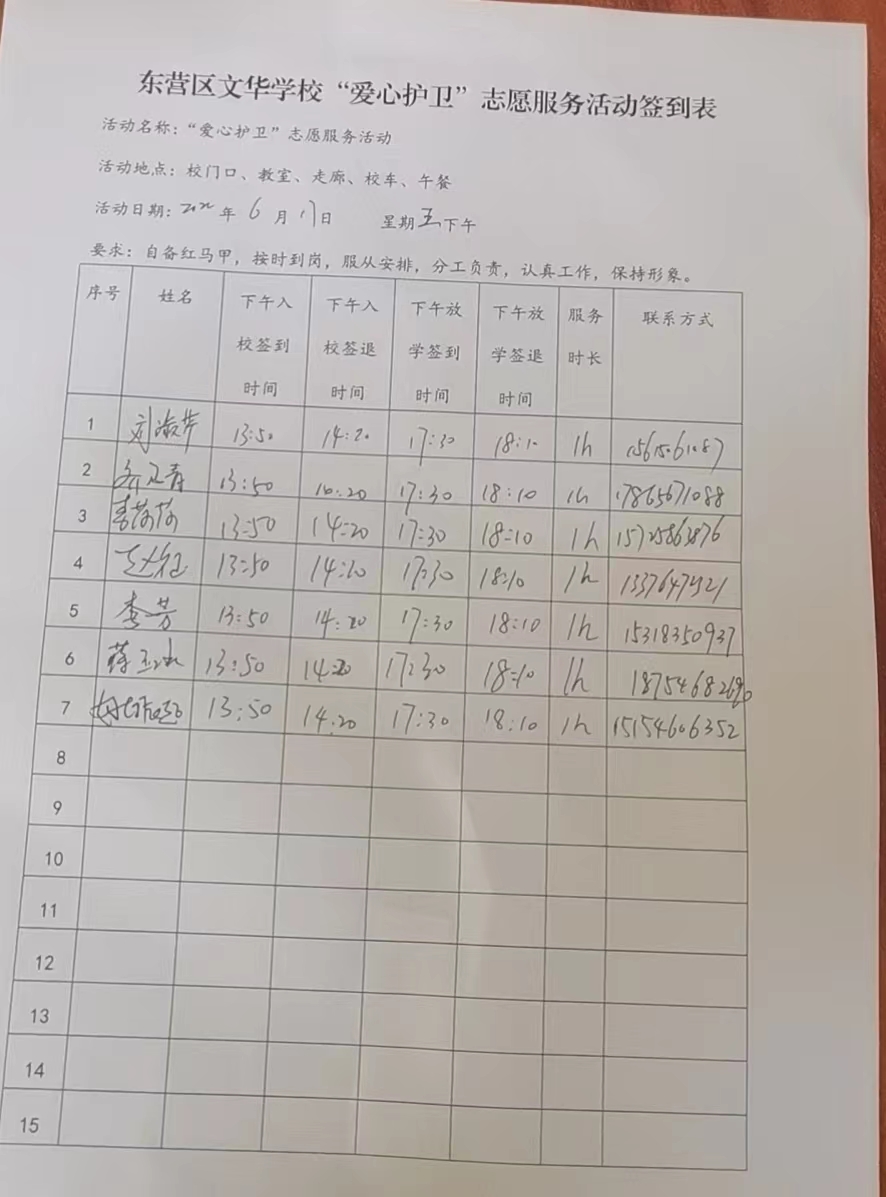 东营区文华学校“爱心护卫”志愿服务活动签到表
活动名称：“爱心护卫”志愿服务活动
活动地点：校门口、教室、走廊、校车、午餐
活动日期： 年 6 月 17 日 星期五下午
要求：自备红马甲，按时到岗，服从安排，分工负责，认真工作，保持形象。
序号 姓名 下午入校签到时间 下午入校签退时间 下午放学签到时间 下午放学签退时间 服务时长 联系方式
1 刘淑华 13:50 14:20 17:30 18:10 1h
2 13:50 17:30 18:10 1h 17865671088
3 李荷荷 13:50 14:20 17:30 18:10 1h
4 13:50 17:30 18:10 1h
5 李芳 13:50 14:20 17:30 18:10 1h 15318350937
6 13:50 14:20 17:30 18:10 1h
7 13:50 14:20 17:30 18:10 1h 15154606352
8
9
10
11
12
13
14
15